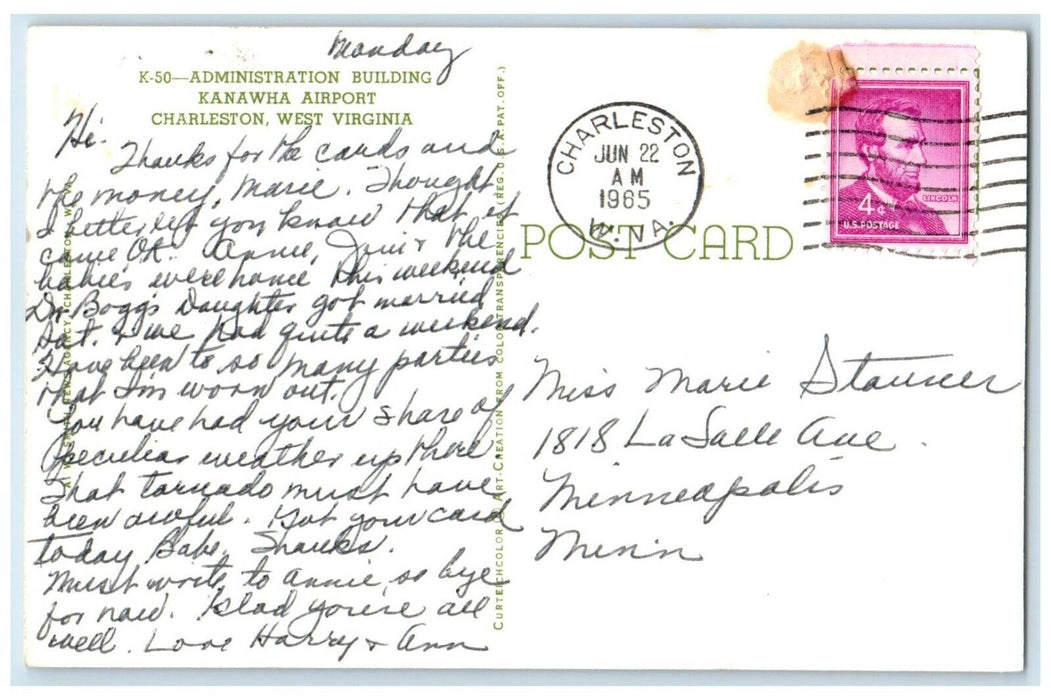 Monday
K-50—ADMINISTRATION BUILDING
KANAWHA AIRPORT
CHARLESTON, WEST VIRGINIA
Hi-
Thanks for the cards and
the money, Marie. Thought
I better let you know that it
came OK. Annie, Jim & the
babies were home this weekend
Dr. Boggs Daughter got married
Sat. & we had quite a weekend.
Have been to so many parties
that I'm worn out.
You have had your share of
peculiar weather up there
That tornado must have
been awful. Got your card
today Babe. Thanks.
Must write to Annie, so bye
for now. Glad you're all
well. Love Harry & Ann
CURTEICHCOLOR ART-CREATION FROM COLOR TRANSPARENCIES (REG. U.S.A. PAT. OFF.)
CHARLESTON
JUN 22
AM
1965
W. VA.
LINCOLN
4¢
U.S. POSTAGE
POST CARD
Miss Marie Stauner
1818 LaSalle Ave.
Minneapolis
Minn